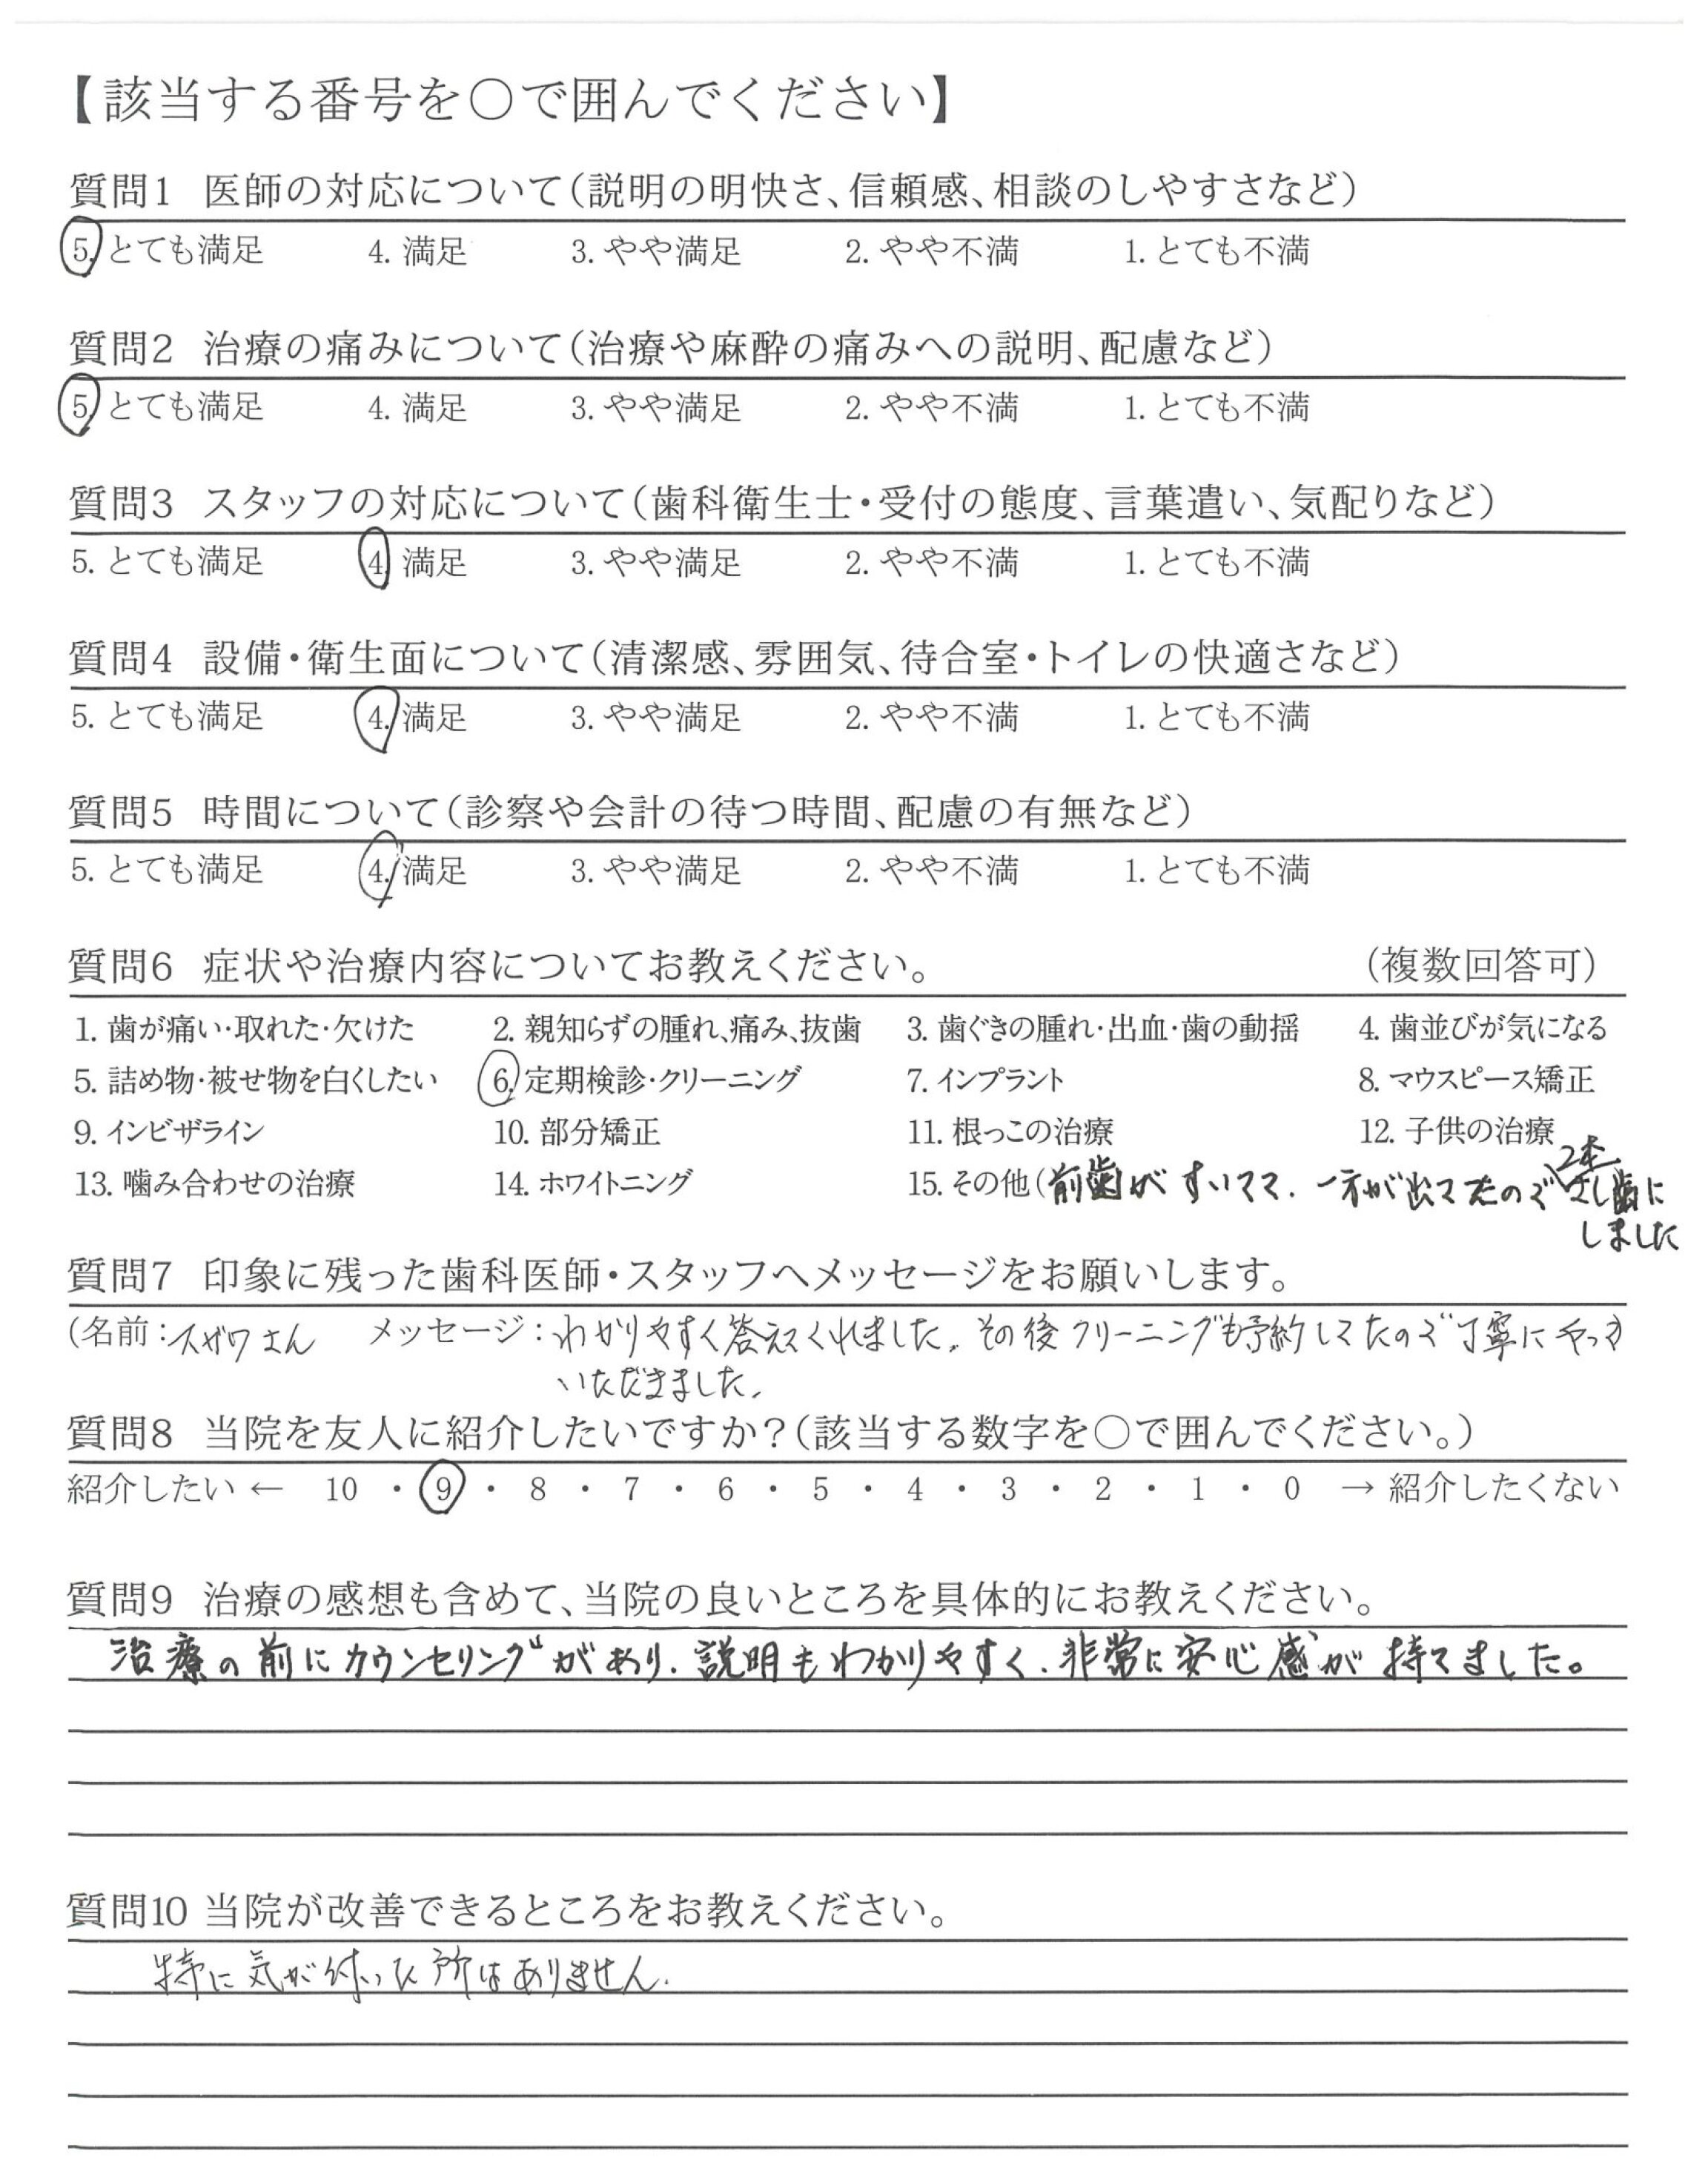 【該当する番号を○で囲んでください】
質問1 医師の対応について（説明の明快さ、信頼感、相談のしやすさなど）
5. とても満足 4. 満足 3. やや満足 2. やや不満 1. とても不満
質問2 治療の痛みについて（治療や麻酔の痛みへの説明、配慮など）
5. とても満足 4. 満足 3. やや満足 2. やや不満 1. とても不満
質問3 スタッフの対応について（歯科衛生士・受付の態度、言葉遣い、気配りなど）
5. とても満足 4. 満足 3. やや満足 2. やや不満 1. とても不満
質問4 設備・衛生面について（清潔感、雰囲気、待合室・トイレの快適さなど）
5. とても満足 4. 満足 3. やや満足 2. やや不満 1. とても不満
質問5 時間について（診察や会計の待つ時間、配慮の有無など）
5. とても満足 4. 満足 3. やや満足 2. やや不満 1. とても不満
質問6 症状や治療内容についてお教えください。 （複数回答可）
1. 歯が痛い・取れた・欠けた 2. 親知らずの腫れ、痛み、抜歯 3. 歯ぐきの腫れ・出血・歯の動揺 4. 歯並びが気になる
5. 詰め物・被せ物を白くしたい 6. 定期検診・クリーニング 7. インプラント 8. マウスピース矯正
9. インビザライン 10. 部分矯正 11. 根っこの治療 12. 子供の治療
13. 噛み合わせの治療 14. ホワイトニング 15. その他（前歯がすいてて、一方が出てたので2本さし歯に
しました
質問7 印象に残った歯科医師・スタッフへメッセージをお願いします。
（名前： さん メッセージ：わかりやすく答えてくれました。その後クリーニングも予約してたので丁寧にやって
いただきました。
質問8 当院を友人に紹介したいですか？（該当する数字を○で囲んでください。）
紹介したい ← 10 ・ 9 ・ 8 ・ 7 ・ 6 ・ 5 ・ 4 ・ 3 ・ 2 ・ 1 ・ 0 → 紹介したくない
質問9 治療の感想も含めて、当院の良いところを具体的にお教えください。
治療の前にカウンセリングがあり、説明もわかりやすく、非常に安心感が持てました。
質問10 当院が改善できるところをお教えください。
特に気が付いた所はありません。